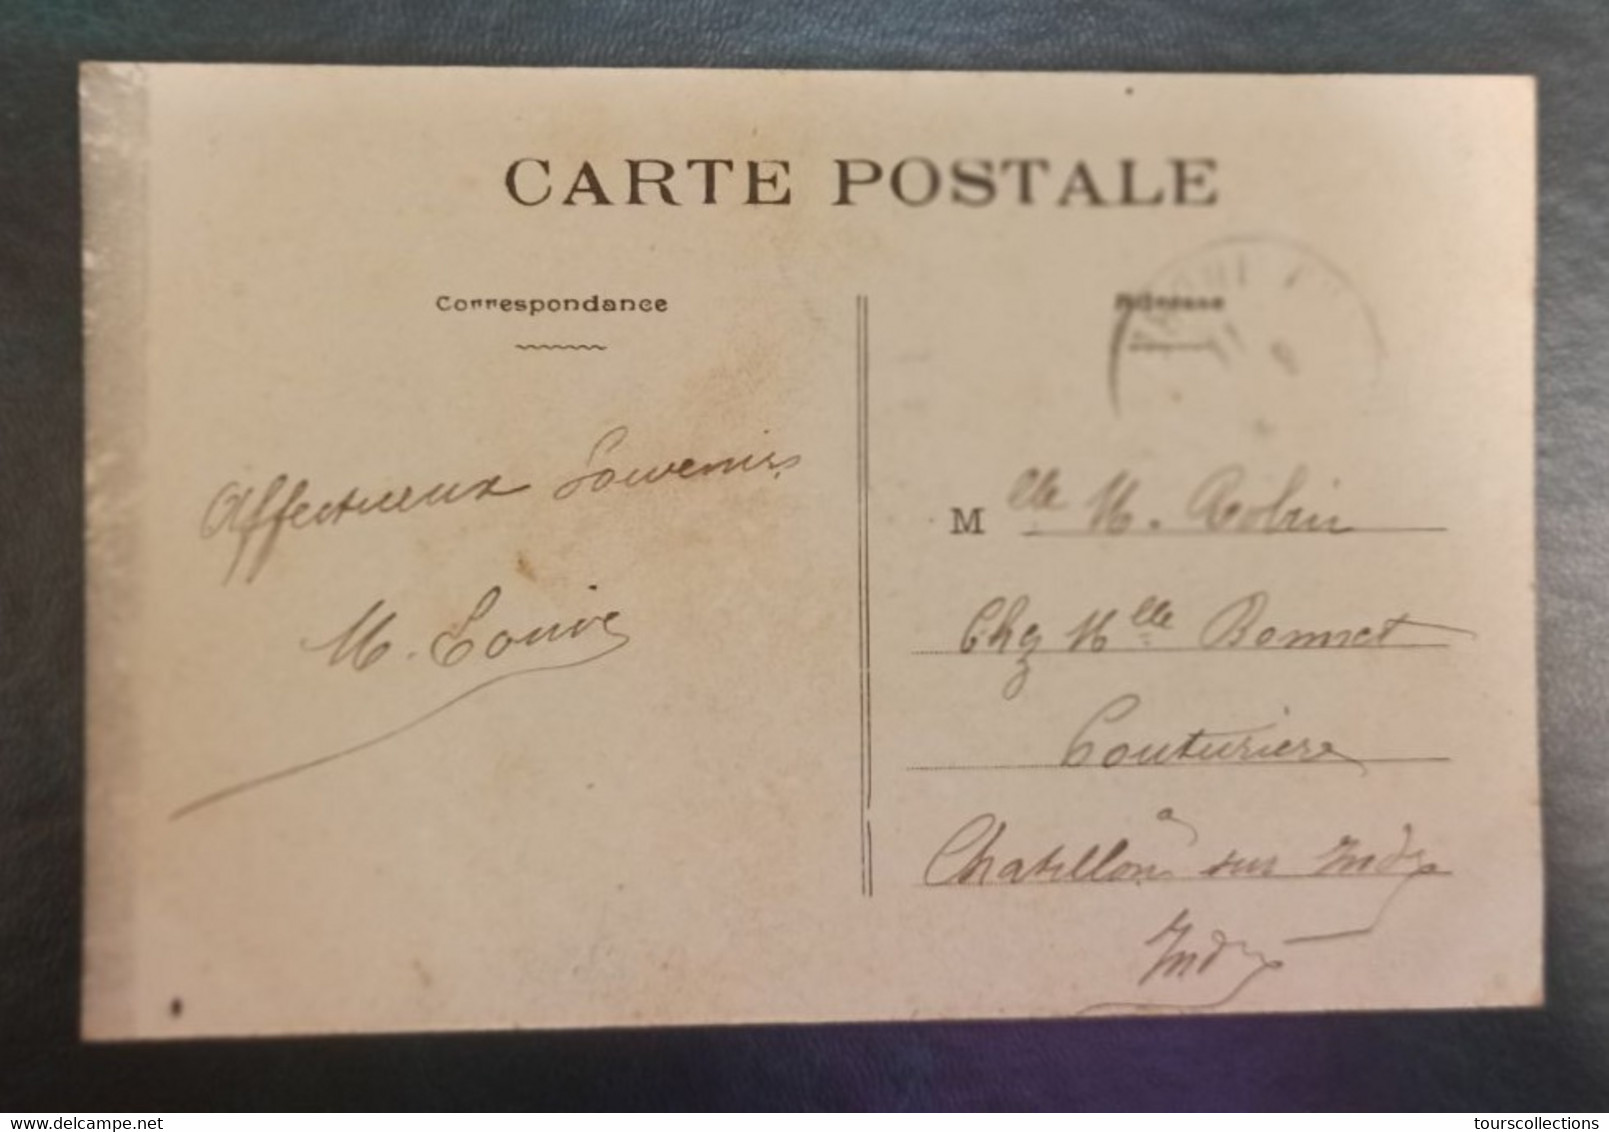 CARTE POSTALE
Correspondance
Adresse
Affectueux Souvenirs
M.
Mlle M. Robin
Chez Mlle Bonnet
Couturière
Chatillon sur Indre
Indre
delcampe.net
tourscollections